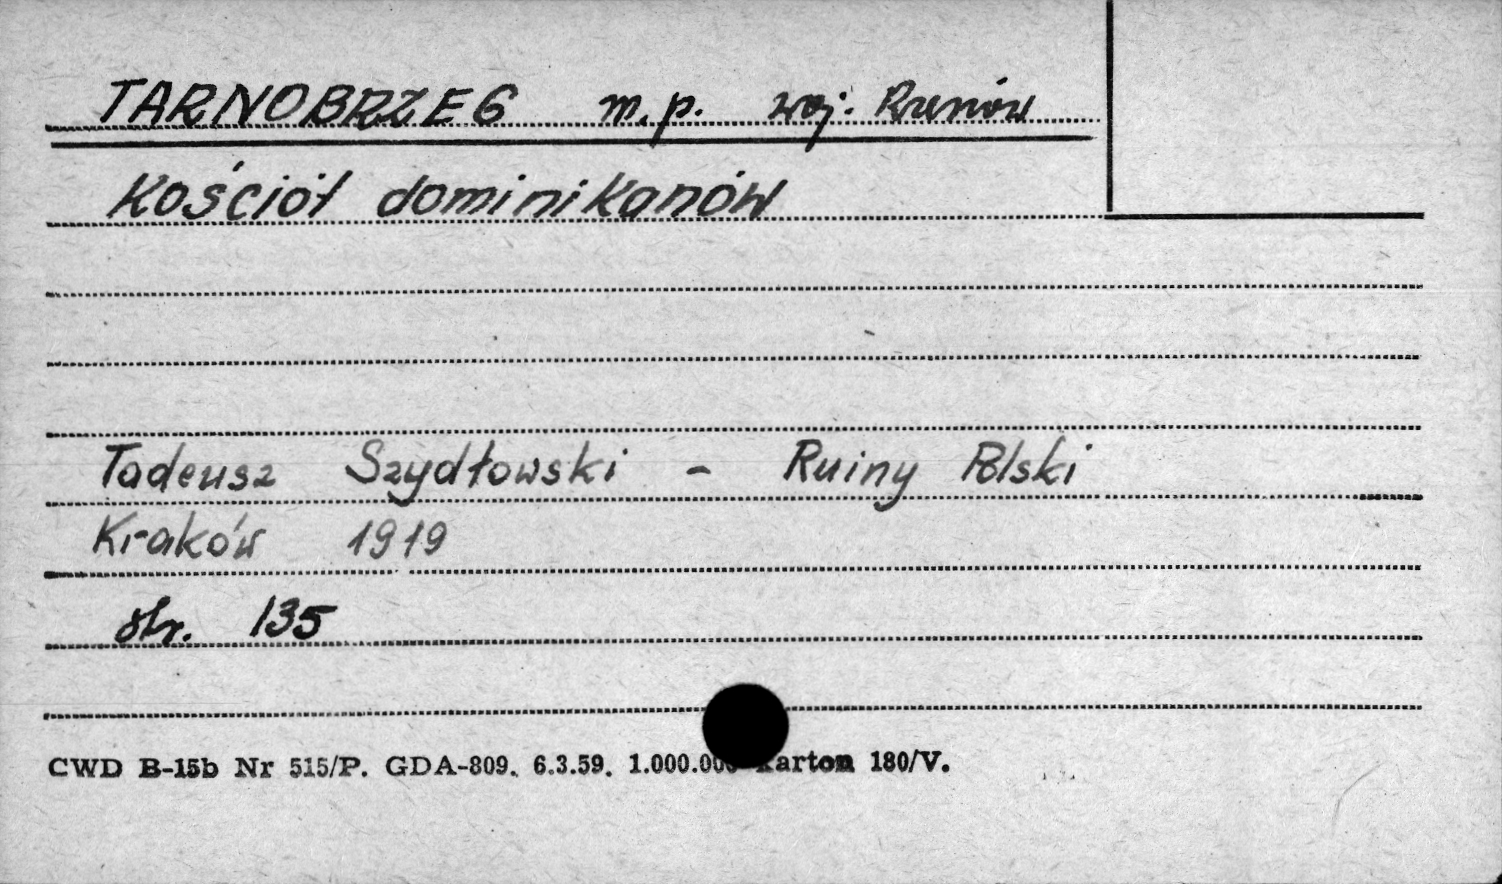 TARNOBRZEG m.p. woj. Rzeszów
Kościół dominikanów
Tadeusz Szydłowski - Ruiny Polski
Kraków 1919
str. 135
CWD B-15b Nr 515/P. GDA-809. 6.3.59. 1.000.000 Karton 180/V.